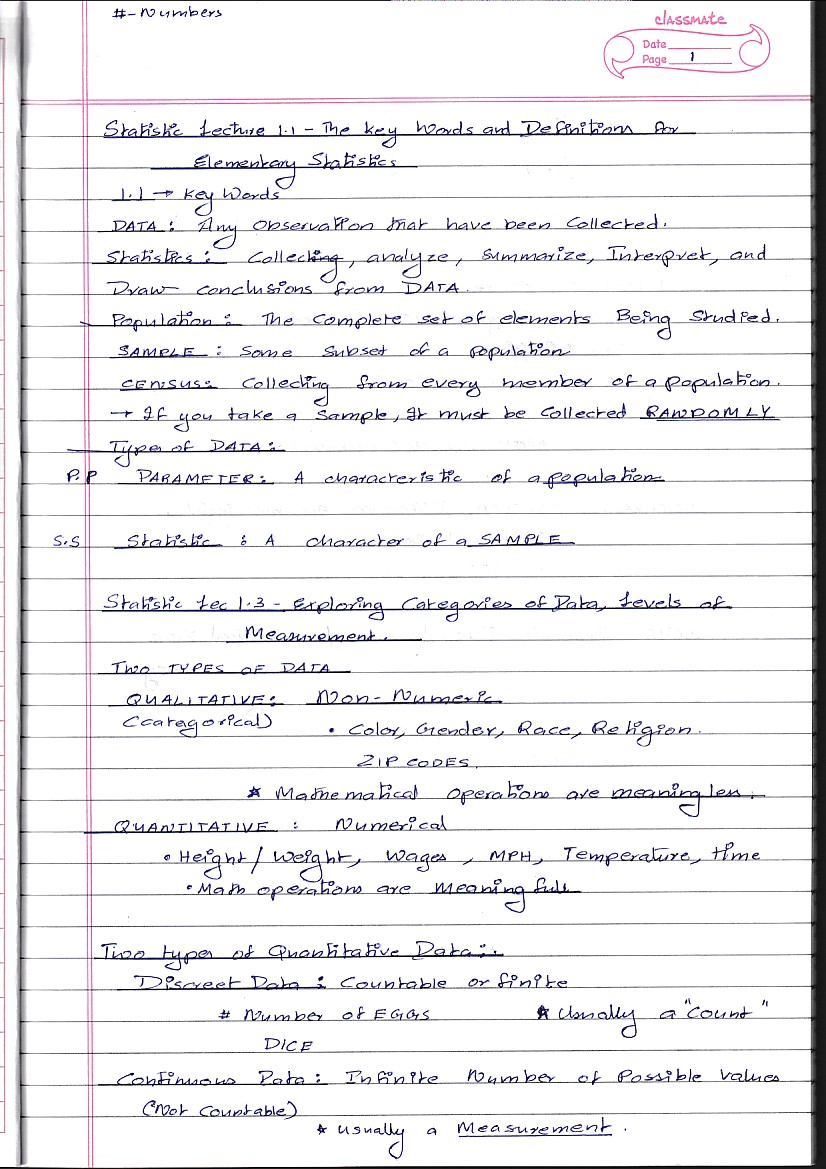 #-Numbers
classmate
Date
Page 1
Statistic Lecture 1.1 - The key Words and Definitions for
Elementary Statistics
1.1 → key Words
DATA : Any observation that have been collected.
Statistics : Collecting, analyze, summarize, Interpret, and
Draw conclusions from DATA.
Population : The complete set of elements Being Studied.
SAMPLE : Some subset of a population
CENSUS: Collecting from every member of a population.
→ If you take a Sample, It must be collected RANDOMLY
Types of DATA:
P.P PARAMETER: A characteristic of a population
S.S Statistic : A character of a SAMPLE
Statistic Lec 1.3 - Exploring Categories of Data, Levels of
Measurement.
Two TYPES OF DATA
QUALITATIVE: Non-Numeric
(categorical) • Color, Gender, Race, Religion.
ZIP CODES.
★ Mathematical operations are meaning less.
QUANTITATIVE : Numerical
• Height/Weight, Wages, MPH, Temperature, time
• Math operations are Meaning full
Two types of Quantitative Data:
Discreet Data : Countable or finite
# Number of EGGS ★ Usually a "count"
DICE
Continuous Data: Infinite Number of Possible values
(Not Countable)
★ usually a Measurement.